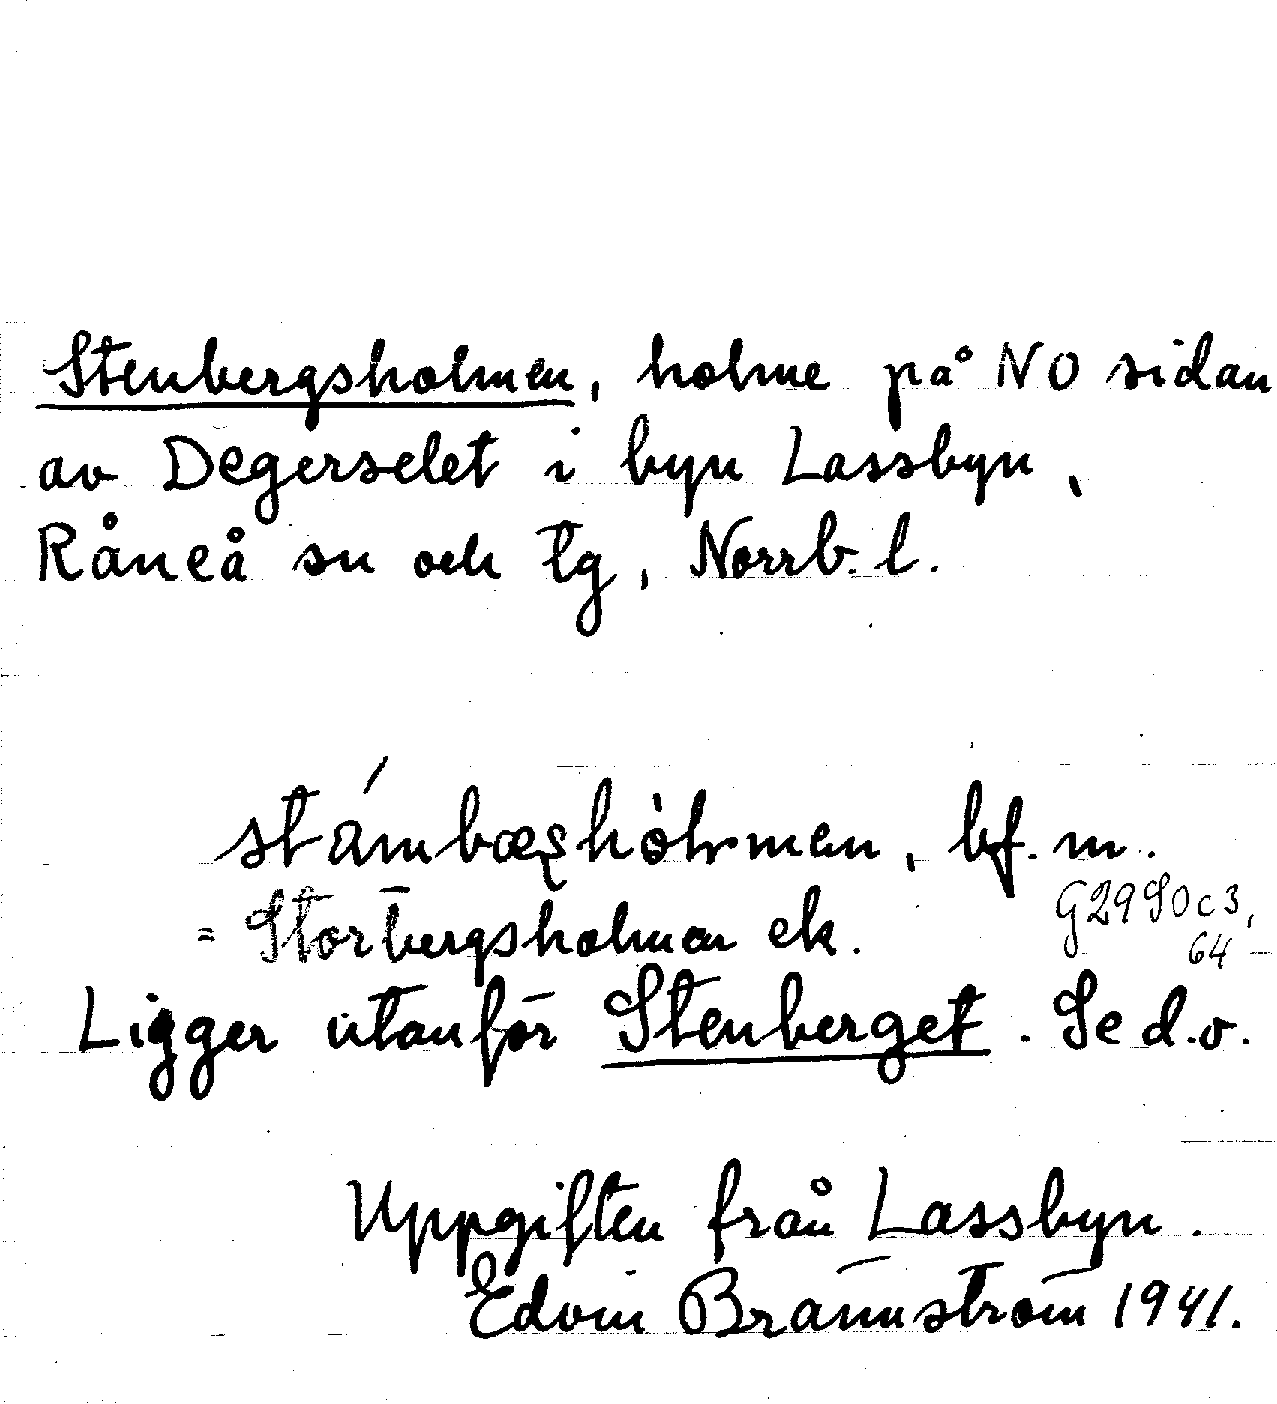 Stenbergsholmen, holme på NO sidan
av Degerselet i byn Lassbyn,
Råneå sn och tg, Norrb. l.
bf. m.
= Storbergsholmen ek.
G29S0c3,
64
Ligger utanför Stenberget. Se d.o.
Uppgiften från Lassbyn.
Edvin Brännström 1941.